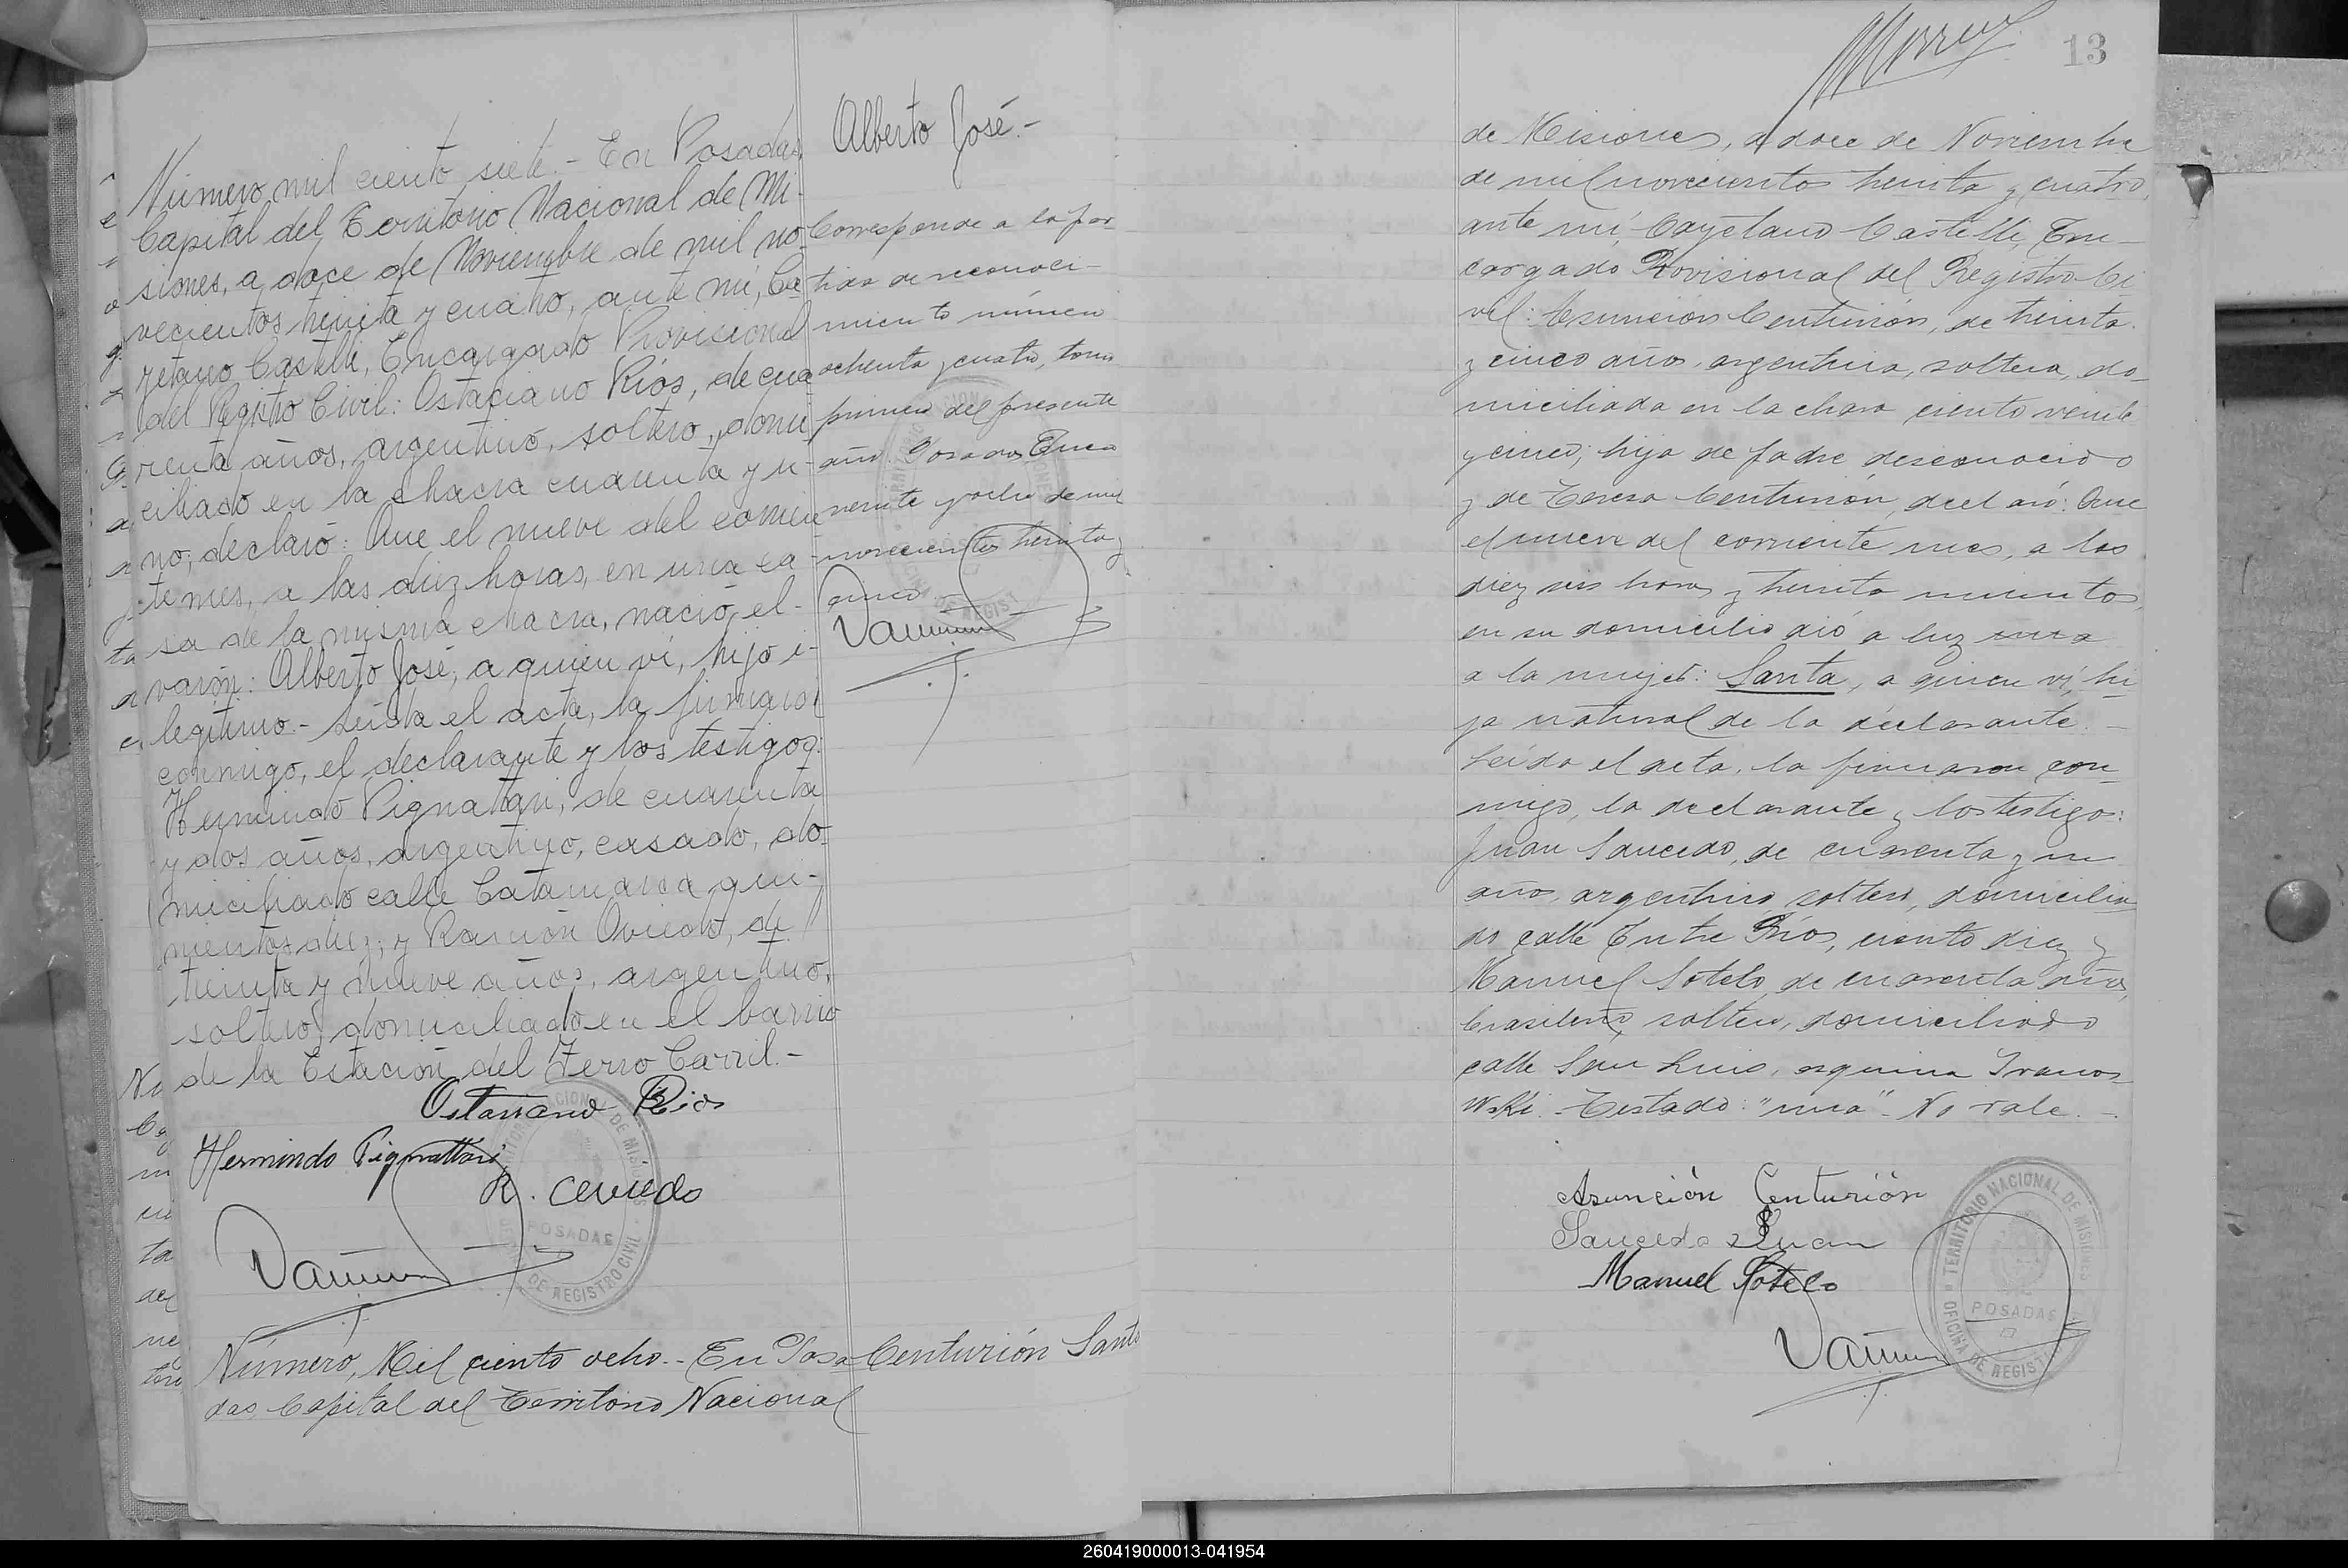 Número, mil ciento siete.- En Posadas,
Capital del Territorio Nacional de Mi-
siones, a doce de Noviembre de mil no-
vecientos treinta y cuatro, ante mí, Ca-
yetano Castelli, Encargado Provisional
del Registro Civil: Ostaciano Ríos, de cua
renta años, argentino, soltero, domi
ciliado en la chacra cuarenta y u-
no, declaró: Que el nueve del corrien
te mes, a las diez horas, en una ca-
sa de la misma chacra, nació el-
varón: Alberto José, a quien ví, hijo i-
legítimo.- Leída el acta, la firmaron
conmigo, el declarante y los testigos:
Hermindo Pignatari, de cuarenta
y dos años, argentino, casado, do-
miciliado calle Catamarca qui-
nientos diez; y Ramón Oviedo, de
treinta y nueve años, argentino,
soltero, domiciliado en el barrio
de la Estación del Ferro Carril.-
Ostaciano Rios
Hermindo Pignattari
R. Oviedo
TERRITORIO NACIONAL DE MISIONES
POSADAS
OFICINA DE REGISTRO CIVIL
Alberto José.-
Corresponde a la par-
tida de reconoci-
miento número
ochenta y cuatro, tomo
primero del presente
año. Posadas Enero
veinte y ocho de mil
novecientos treinta y
cinco.-
Número, Mil ciento ocho.- En Posa
das Capital del Territorio Nacional
Centurión Santa
13
de Misiones, a doce de Noviembre
de mil novecientos treinta y cuatro,
ante mí, Cayetano Castelli, En-
cargado Provisional del Registro Ci
vil: Asunción Centurión, de treinta
y cinco años, argentina, soltera, do-
miciliada en la chara ciento veinte
y cinco; hija de padre desconocido
y de Teresa Centurión, declaró: Que
el nueve del corriente mes, a las
diez seis horas y treinta minutos,
en su domicilio dió a luz una
a la mujer: Santa, a quien ví, hi
ja natural de la declarante.-
Leída el acta, la firmaron con
migo, la declarante y los testigos:
Juan Saucedo, de cuarenta y un
años, argentino soltero, domicilia
do calle Entre Ríos, ciento diez y
Manuel Sotelo, de cuarenta años,
brasileño, soltero, domiciliado
calle San Luis, esquina Iranos
wski.- Testado: "una"- No vale.-
Asunción Centurión
Saucedo Juan
Manuel Sotelo
TERRITORIO NACIONAL DE MISIONES
POSADAS
OFICINA DE REGISTRO
260419000013-041954